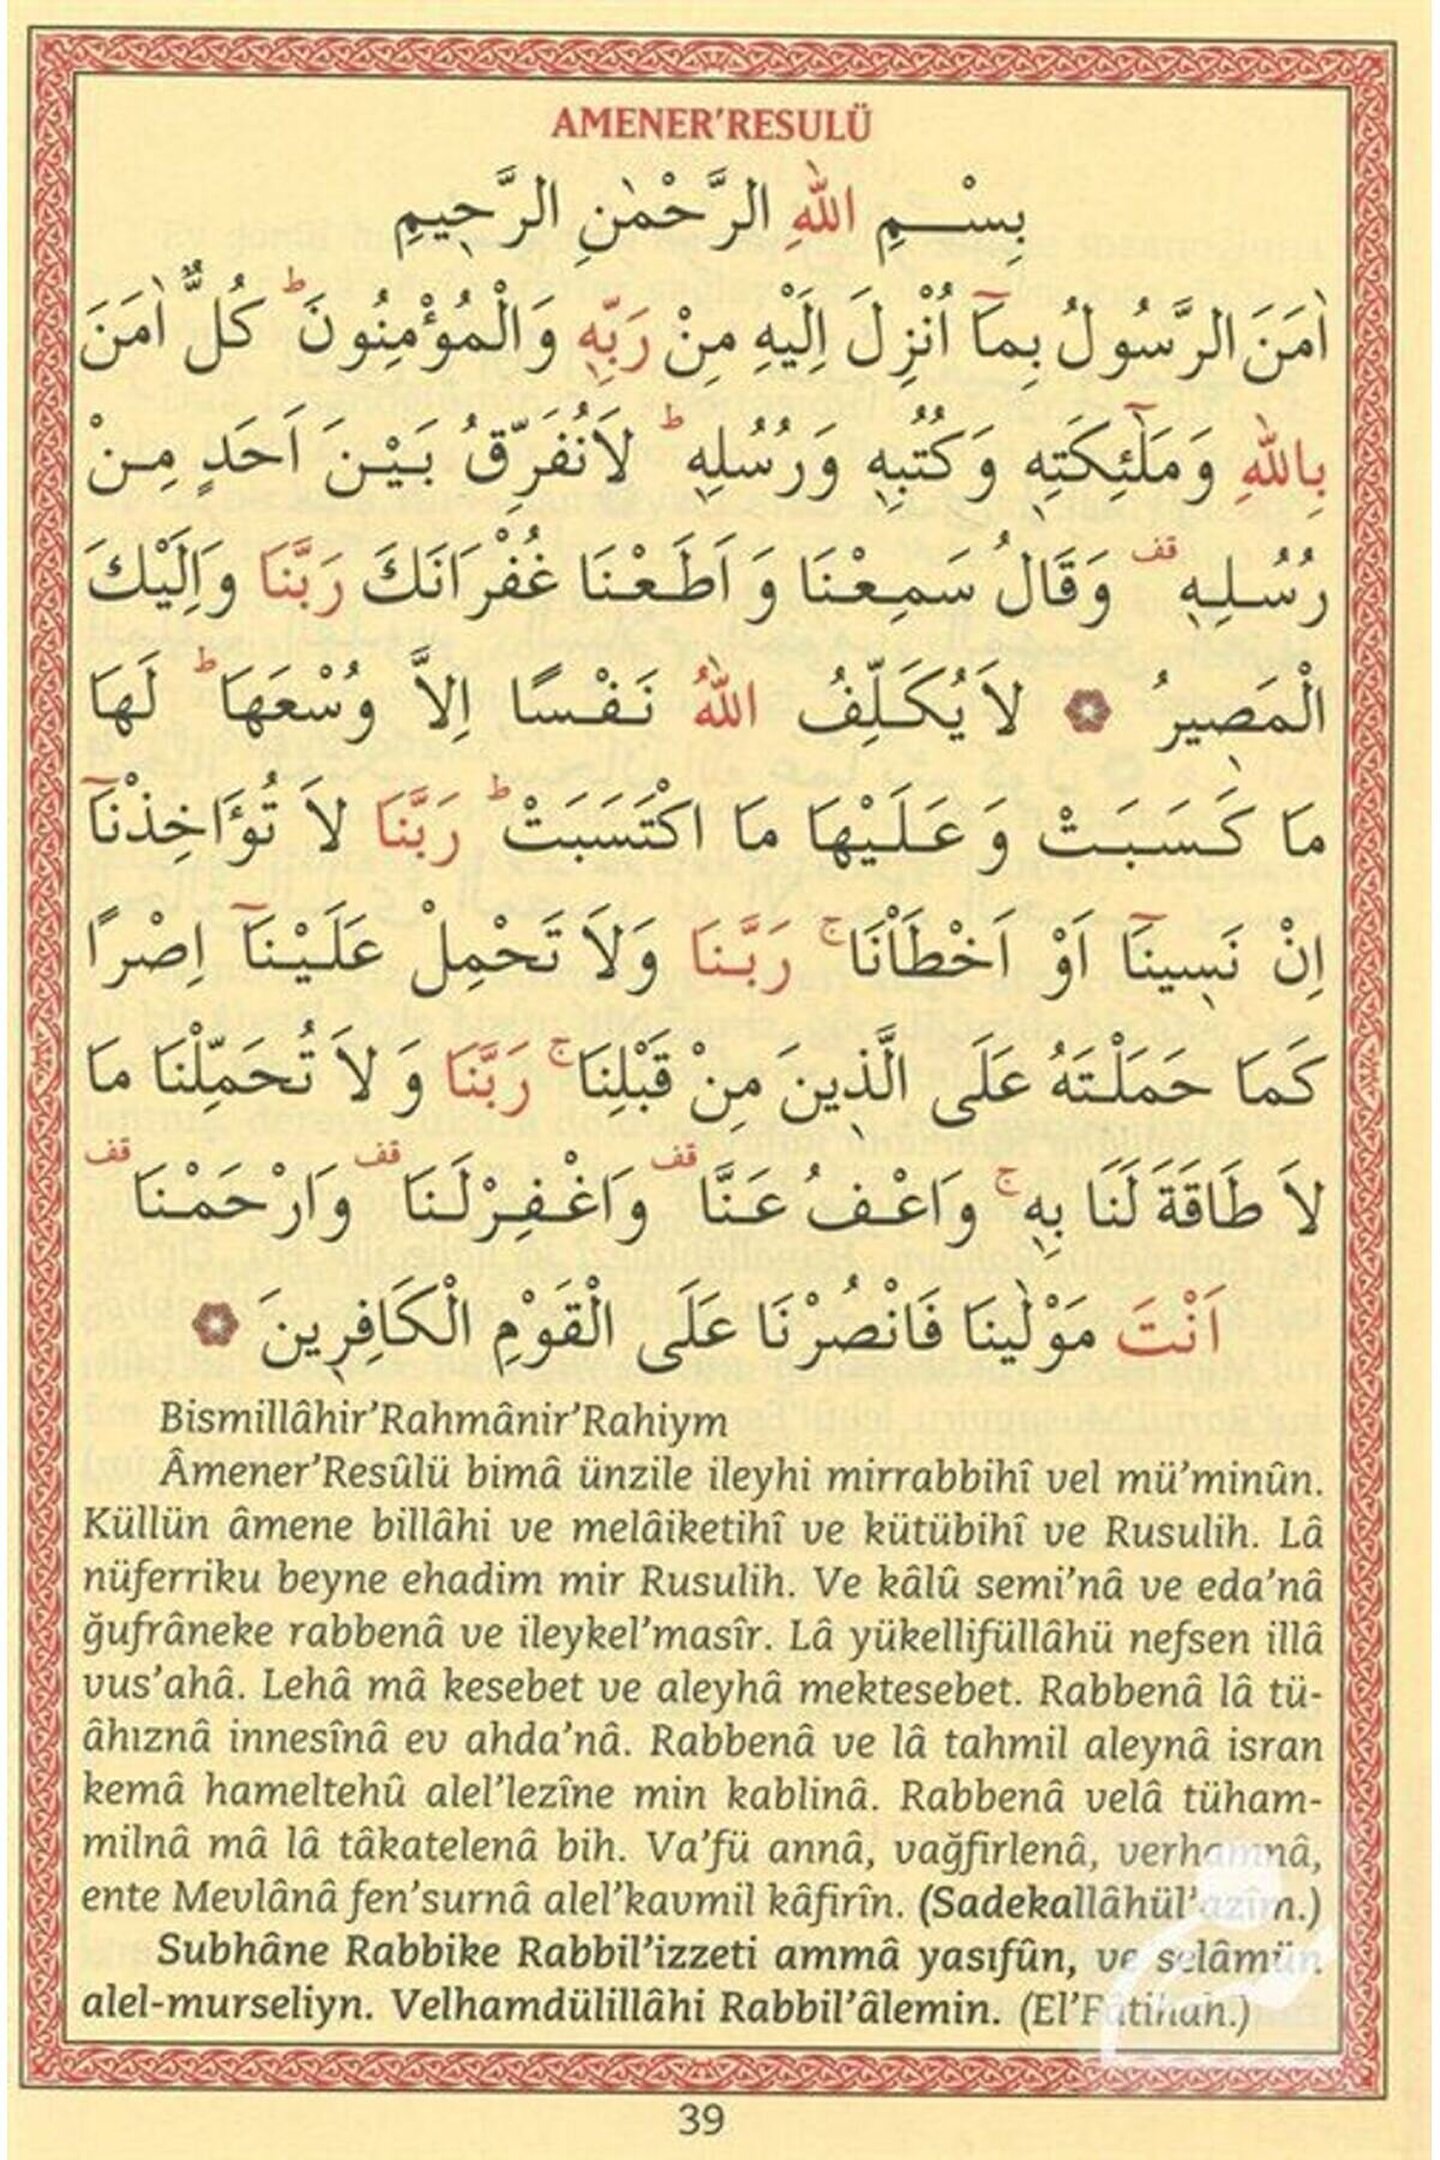 AMENER'RESULÜ
بِسْــــمِ اللّٰهِ الرَّحْمٰنِ الرَّح۪يمِ
اٰمَنَ الرَّسُولُ بِمَٓا اُنْزِلَ اِلَيْهِ مِنْ رَبِّه۪ وَالْمُؤْمِنُونَۜ كُلٌّ اٰمَنَ
بِاللّٰهِ وَمَلٰٓئِكَتِه۪ وَكُتُبِه۪ وَرُسُلِه۪ۜ لَانُفَرِّقُ بَيْنَ اَحَدٍ مِنْ
رُسُلِه۪ قف وَقَالُ سَمِعْنَا وَ اَطَعْنَا غُفْرَانَكَ رَبَّنَا وَاِلَيْكَ
الْمَص۪يرُ ۞ لَا يُكَلِّفُ اللّٰهُ نَفْسًا اِلَّا وُسْعَهَاۜ لَهَا
مَا كَسَبَتْ وَ عَلَيْهَا مَا اكْتَسَبَتْۜ رَبَّنَا لَا تُؤَاخِذْنَٓا
اِنْ نَس۪ينَٓا اَوْ اَخْطَأْنَاۚ رَبَّنَا وَلَا تَحْمِلْ عَلَيْنَٓا اِصْرًا
كَمَا حَمَلْتَهُ عَلَى الَّذ۪ينَ مِنْ قَبْلِنَاۚ رَبَّنَا وَ لَا تُحَمِّلْنَا مَا
لَا طَاقَةَ لَنَا بِه۪ۚ وَاعْفُ عَنَّا قف وَاغْفِرْلَنَا قف وَارْحَمْنَا قف
اَنْتَ مَوْلٰينَا فَانْصُرْنَا عَلَى الْقَوْمِ الْكَافِر۪ينَ ۞
Bismillâhir'Rahmânir'Rahiym
Âmener'Resûlü bimâ ünzile ileyhi mirrabbihî vel mü'minûn.
Küllün âmene billâhi ve melâiketihî ve kütübihî ve Rusulih. Lâ
nüferriku beyne ehadim mir Rusulih. Ve kâlû semi'nâ ve eda'nâ
ğufrâneke rabbenâ ve ileykel'masîr. Lâ yükellifüllâhü nefsen illâ
vus'ahâ. Lehâ mâ kesebet ve aleyhâ mektesebet. Rabbenâ lâ tü-
âhıznâ innesînâ ev ahda'nâ. Rabbenâ ve lâ tahmil aleynâ isran
kemâ hameltehû alel'lezîne min kablinâ. Rabbenâ velâ tüham-
milnâ mâ lâ tâkatelenâ bih. Va'fü annâ, vağfirlenâ, verhamnâ,
ente Mevlânâ fen'surnâ alel'kavmil kâfirîn. (Sadekallâhül'azîm.)
Subhâne Rabbike Rabbil'izzeti ammâ yasıfûn, ve selâmün
alel-murseliyn. Velhamdülillâhi Rabbil'âlemin. (El'Fâtihah.)
39